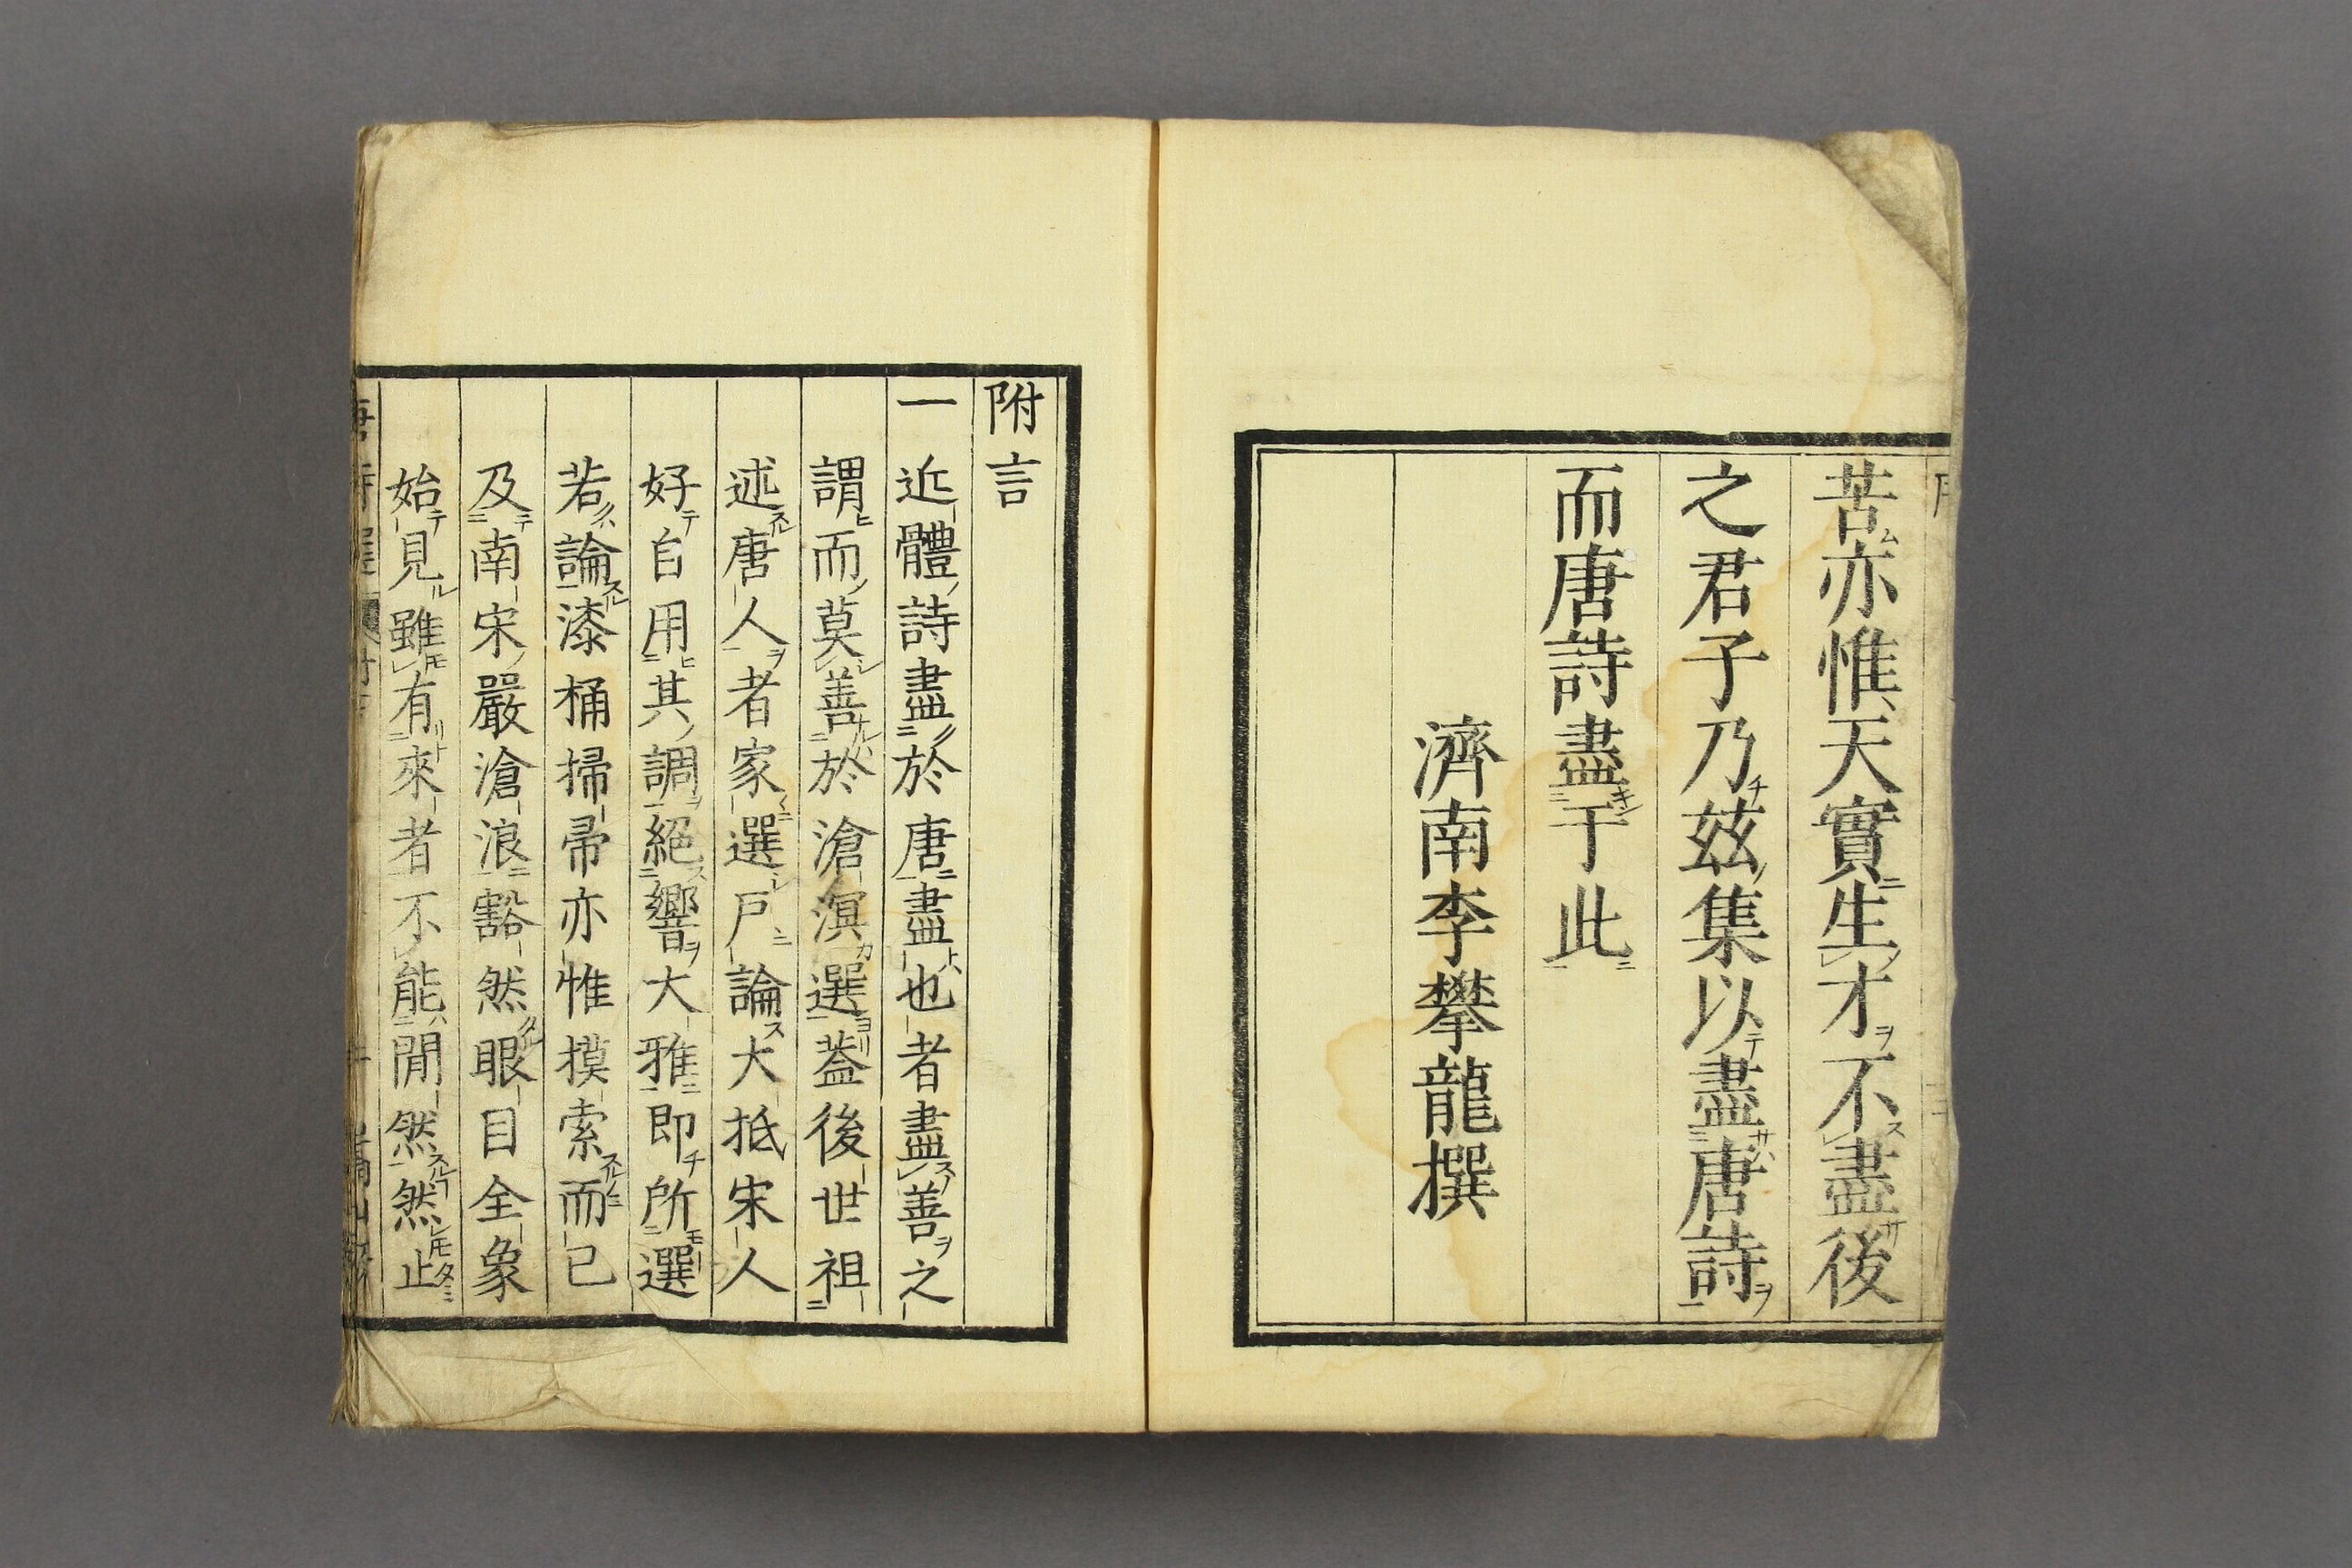 苦亦惟天實生才不盡後
之君子乃玆集以盡唐詩
而唐詩盡于此
濟南李攀龍撰
附言
一近體詩盡於唐盡也者盡善之
謂而莫善於滄溟選蓋後世祖
述唐人者家選戶論大抵宋人
好自用其調絕響大雅即所選
若論漆桶掃帚亦惟摸索而已
及南宋嚴滄浪豁然眼目全象
始見雖有來者不能閒然然止